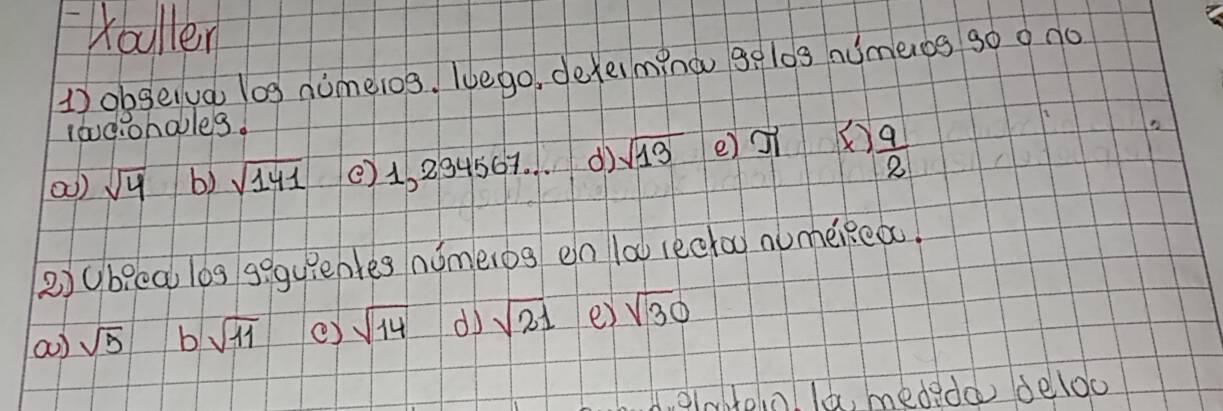 - Taller
1) observa los números. luego, determina si los números so o no
racionales.
a) √4 b) √141 c) 1,234567... d) √13 e) π f) 9/2
2) Ubica los siguientes números en la recta numérica.
a) √5 b √11 c) √14 d) √21 e) √30
la medida de la